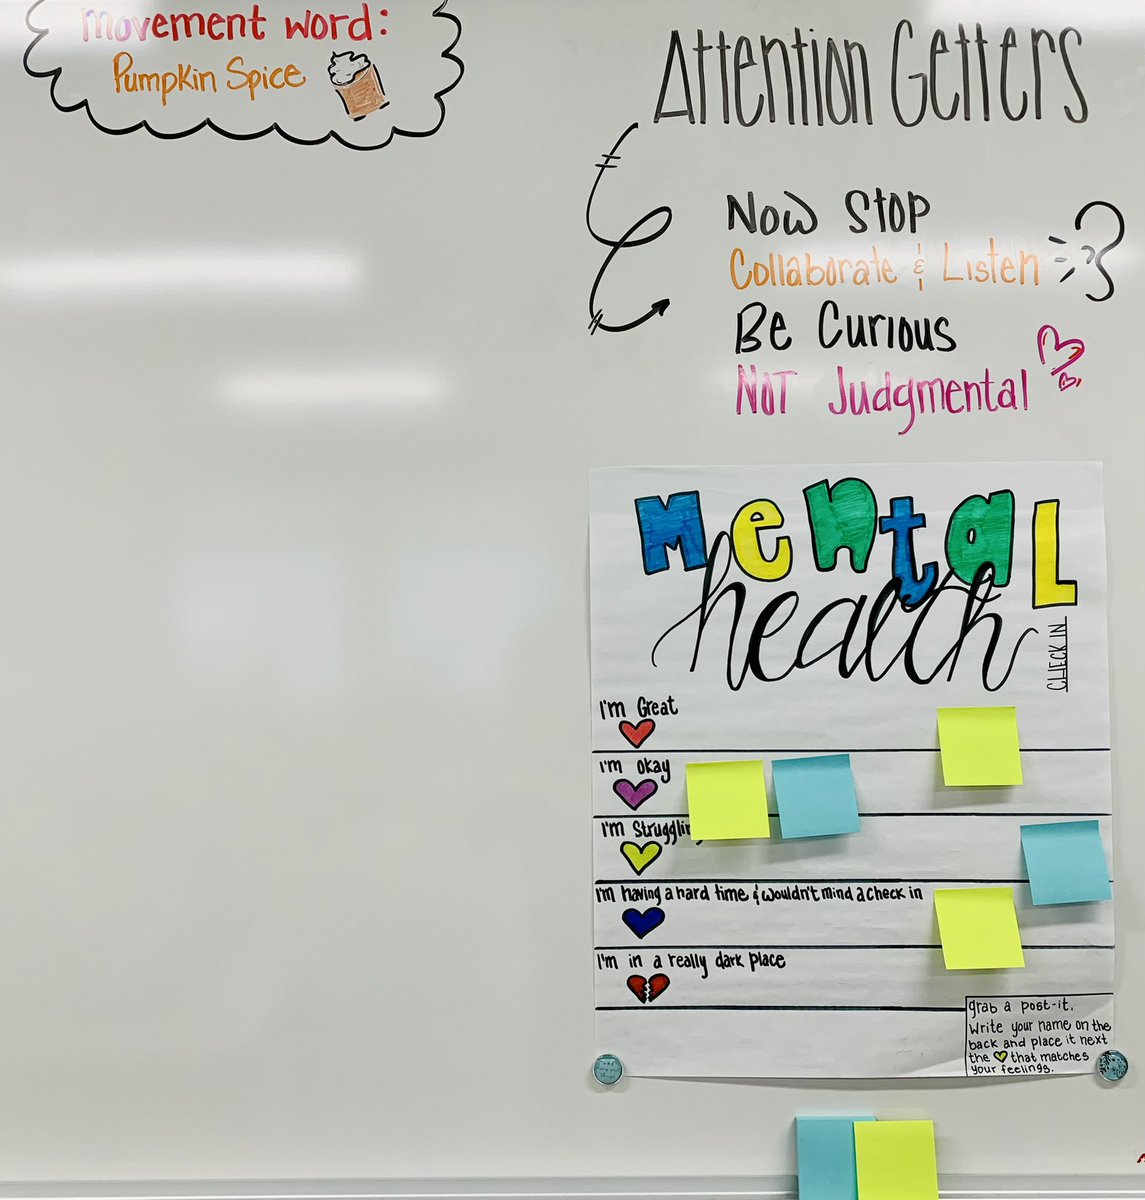 Movement word:
Pumpkin Spice
Attention Getters
Now Stop
Collaborate & Listen
Be Curious
NOT Judgmental
Mental
health
CHECK IN
I'm Great
I'm okay
I'm Struggling
I'm having a hard time & wouldn't mind a check in
I'm in a really dark place
grab a post-it.
Write your name on the
back and place it next
the 💛 that matches
your feelings.